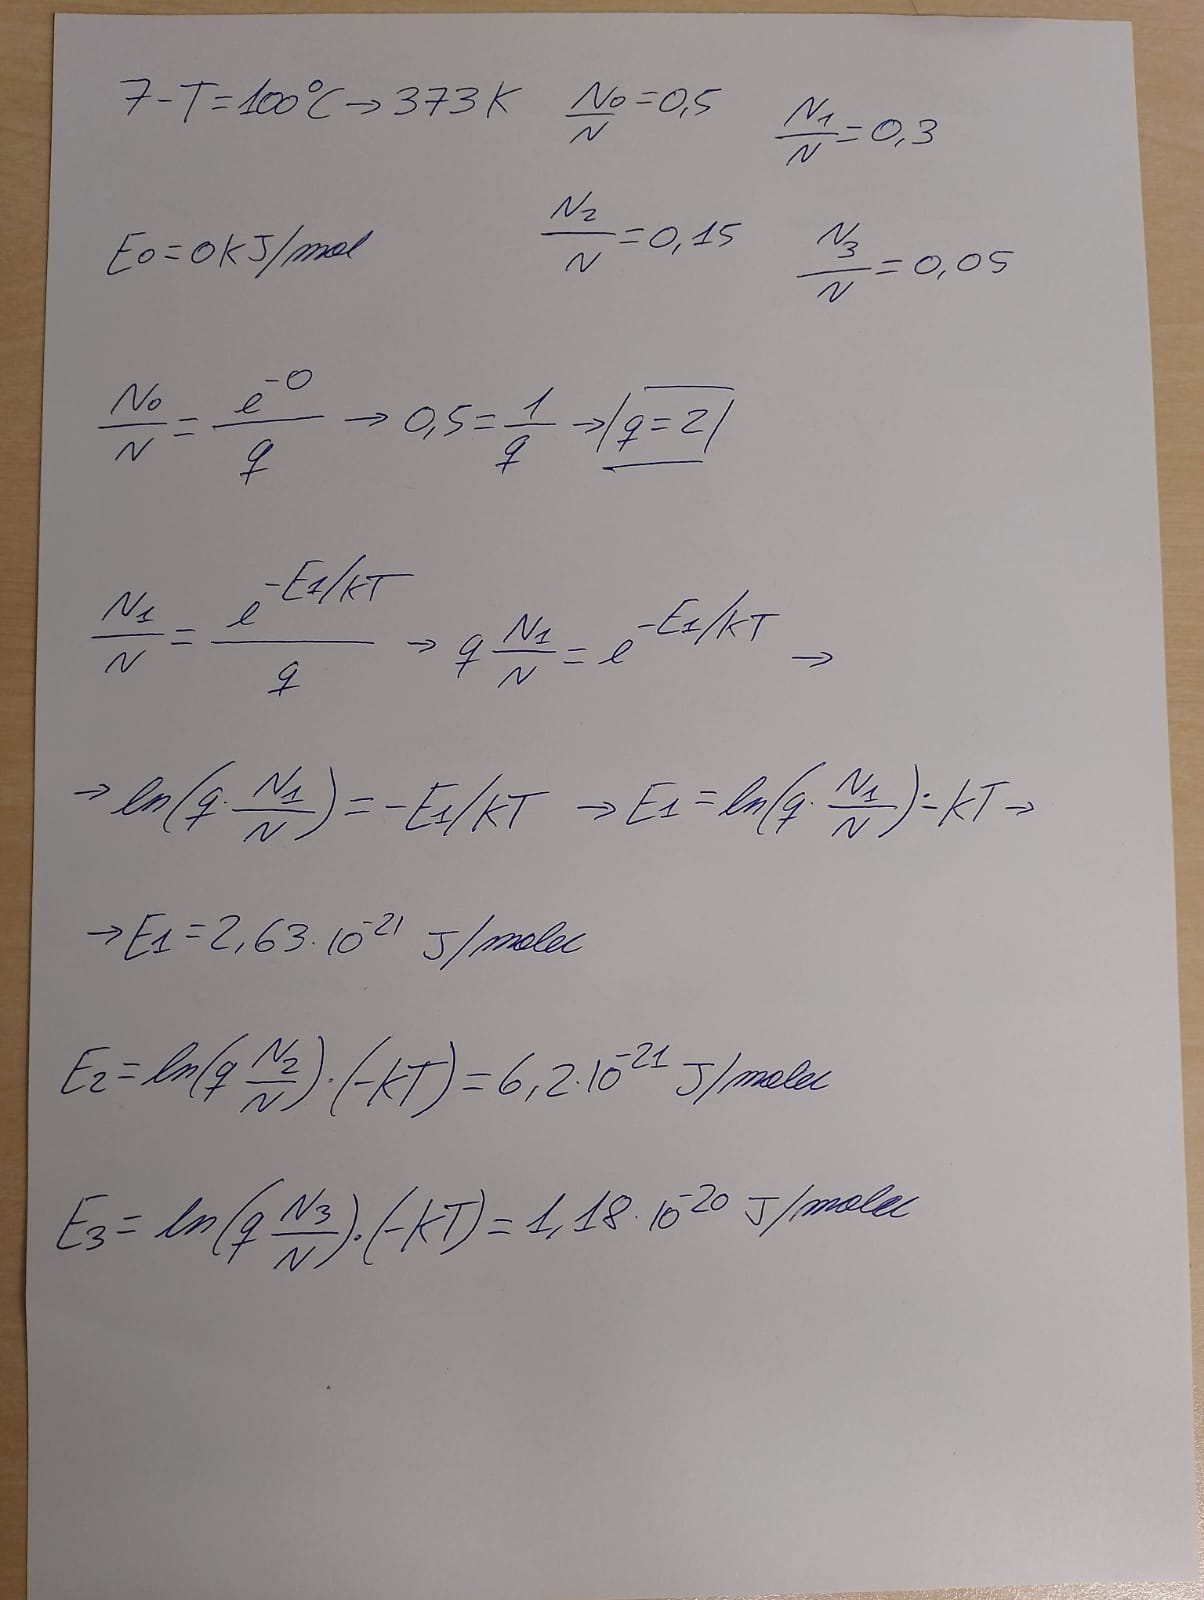 7-T=100°C→373K N₀/N=0,5 N₁/N=0,3
E₀=0kJ/mol N₂/N=0,15 N₃/N=0,05
N₀/N=e⁻⁰/q→0,5=1/q→|q=2|
N₁/N=e^(-E₁/kT)/q→q N₁/N=e^(-E₁/kT)→
→ln(q·N₁/N)=-E₁/kT→E₁=ln(q·N₁/N)·-kT→
→E₁=2,63·10⁻²¹ J/molec
E₂=ln(q N₂/N)·(-kT)=6,2·10⁻²¹ J/molec
E₃=ln(q N₃/N)·(-kT)=1,18·10⁻²⁰ J/molec